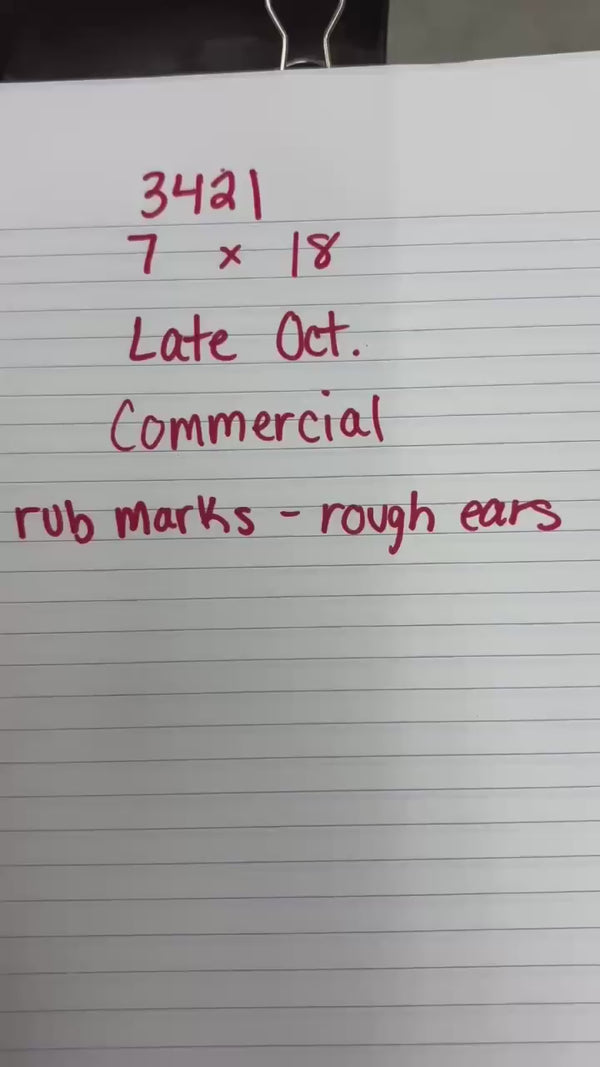 3421
7 x 18
Late Oct.
Commercial
rub marks - rough ears